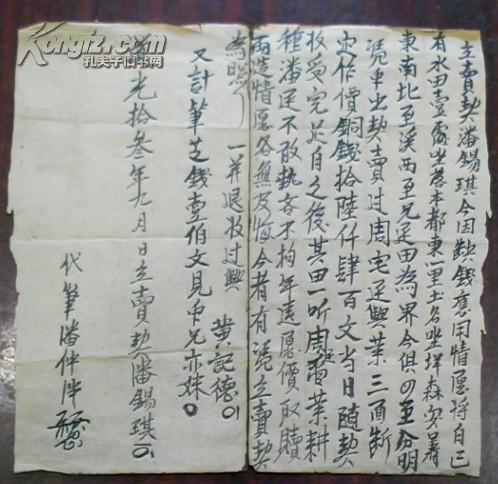 立賣契潘錫琪今因缺錢應用情愿將自己
有水田壹處坐落本都東一里土名坐垟森
東南北至溪西至兄廷田為界今俱四至分明
憑中出契賣過周宅廷興業三面斷
定作價銅錢拾陸仟肆百文當日隨契
收受完足自之後其田一听周管業耕
種潘廷不敢執吝不拘年遠愿價取贖
兩造情愿各無反悔今者有憑立賣契
為照
一并退收过興 黄記德
又計筆芝錢壹伯文見中兄亦妹
光拾叁年九月日立賣契潘錫琪
代筆潘仲
Kongfz.com
孔夫子旧书网